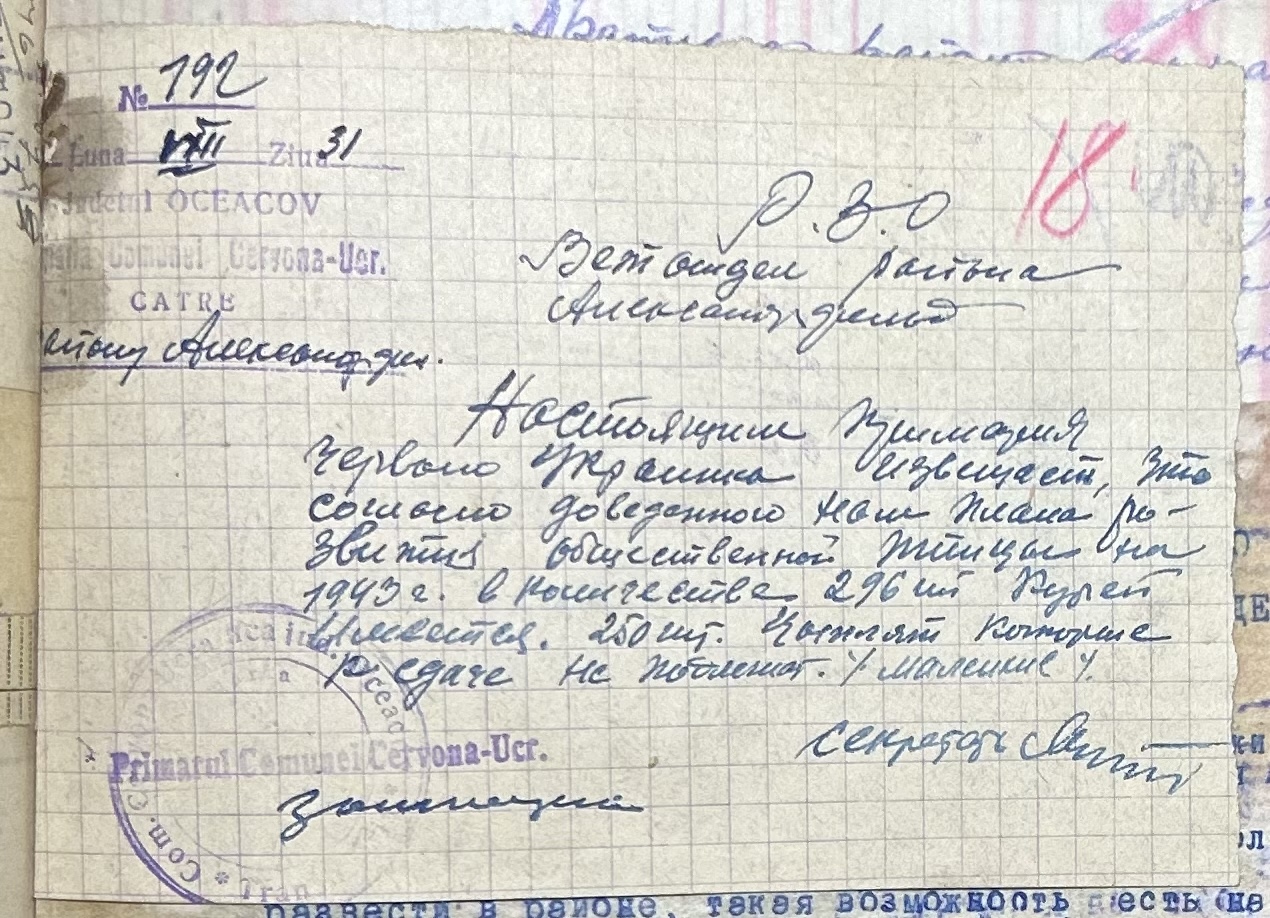 № 192
Luna VIII Ziua 31
Judetul OCEACOV
Comunei Cervona-Ucr.
CATRE
Александрф.
18
Р.З.О
Ветотдел района
Александрфельд
Настоящим Примария
Червоно Украинка извещает, что
согласно доведенного нам плана ра-
звития общественной птицы на
1943 г. в количестве 296 шт Курей
Имеется. 250 шт. Цыплят которые
к сдаче не подлежат. /маленькие/.
секретарь
Primarul Comunei Cervona-Ucr.
Oceac
Com.
Tran
развести в районе, такая возможность есть